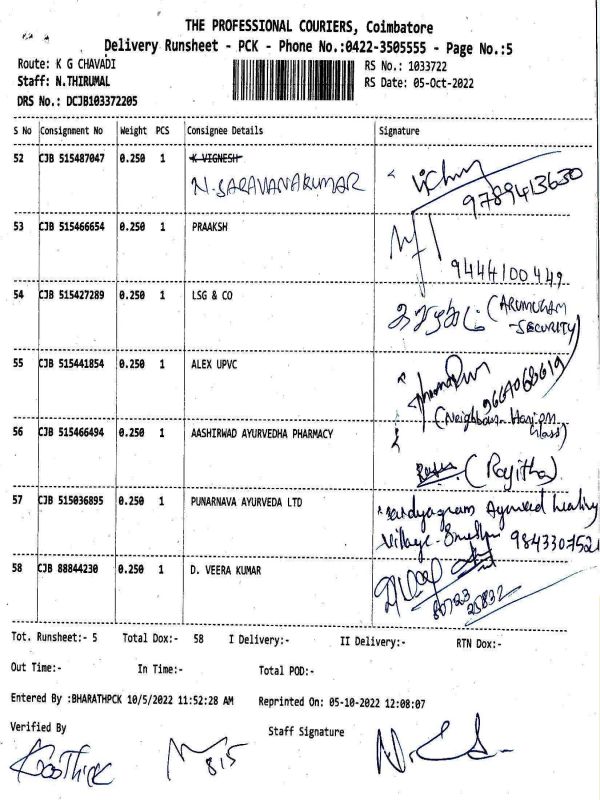 THE PROFESSIONAL COURIERS, Coimbatore
Delivery Runsheet - PCK - Phone No.:0422-3505555 - Page No.:5
Route: K G CHAVADI RS No.: 1033722
Staff: N.THIRUMAL RS Date: 05-Oct-2022
DRS No.: DCJB103372205
S No Consignment No Weight PCS Consignee Details Signature
52 CJB 515487047 0.250 1 K VIGNESH
N.SARAVANAKUMAR 9789413630
53 CJB 515466654 0.250 1 PRAAKSH
9444100449
54 CJB 515427289 0.250 1 LSG & CO (ARUMUGAM
-SECURITY)
55 CJB 515441854 0.250 1 ALEX UPVC
(Neighbour
Glass)
56 CJB 515466494 0.250 1 AASHIRWAD AYURVEDHA PHARMACY
(Rajitha)
57 CJB 515036895 0.250 1 PUNARNAVA AYURVEDA LTD
Ayurved healing
Village
58 CJB 88844230 0.250 1 D. VEERA KUMAR
80723
25832
Tot. Runsheet:- 5 Total Dox:- 58 I Delivery:- II Delivery:- RTN Dox:-
Out Time:- In Time:- Total POD:-
Entered By :BHARATHPCK 10/5/2022 11:52:28 AM Reprinted On: 05-10-2022 12:08:07
Verified By Staff Signature
815